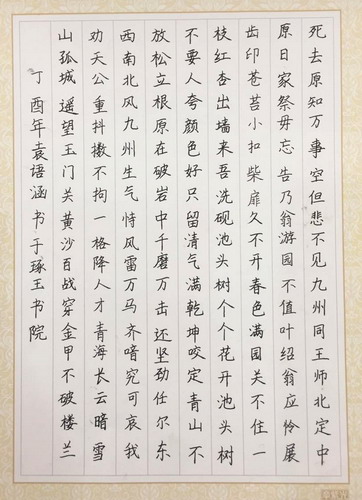 死去原知万事空但悲不见九州同王师北定中
原日家祭毋忘告乃翁游园不值叶绍翁应怜展
齿印苍苔小扣柴扉久不开春色满园关不住一
枝红杏出墙来吾洗砚池头树个个花开池头树
不要人夸颜色好只留清气满乾坤咬定青山不
放松立根原在破岩中千磨万击还坚劲任尔东
西南北风九州生气恃风雷万马齐喑究可哀我
劝天公重抖擞不拘一格降人才青海长云暗雪
山孤城遥望玉门关黄沙百战穿金甲不破楼兰
丁酉年袁语涵书于琢玉书院